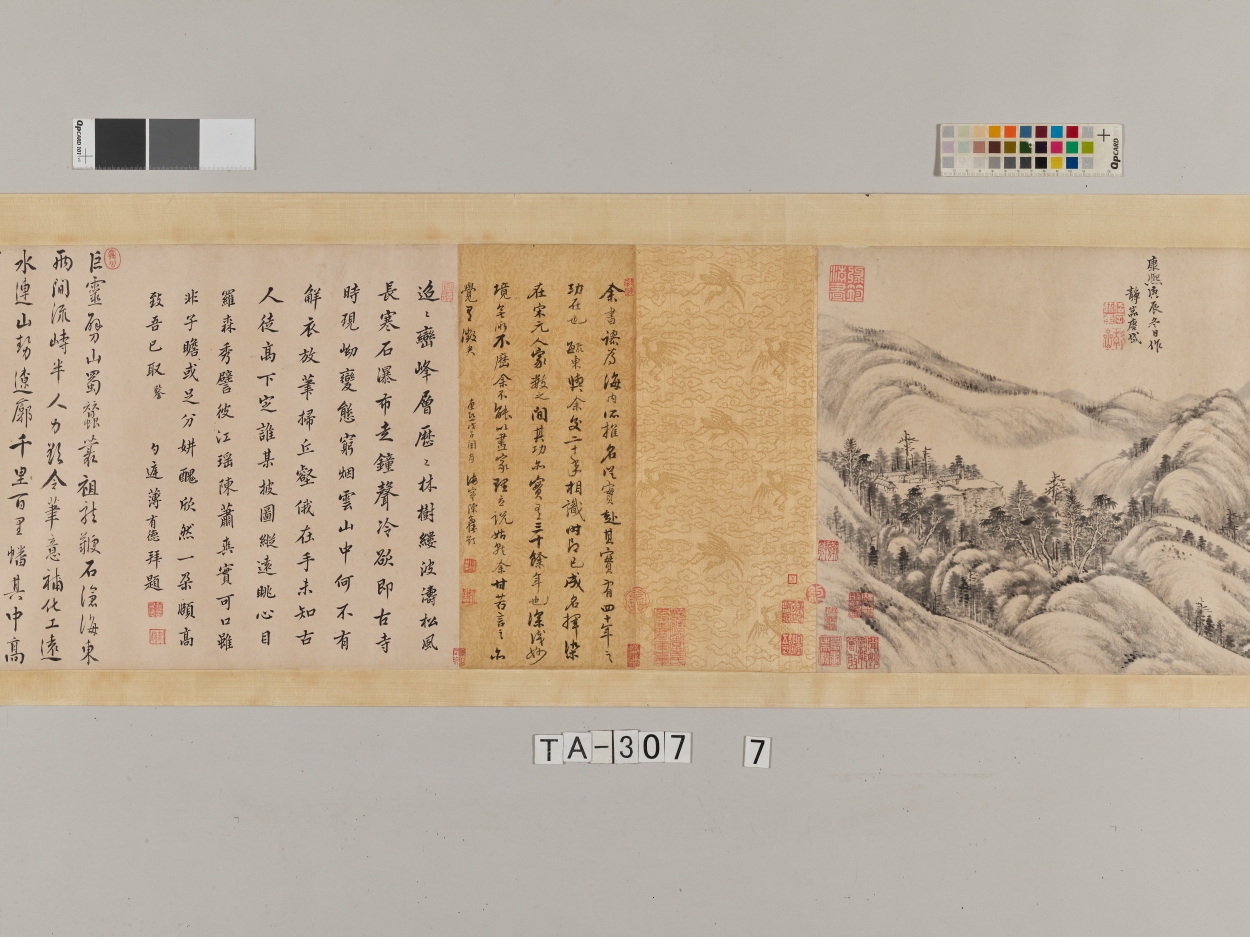 康熙庚辰冬日作
靜岩唐岱
余書謬為海內所推名浮實赴其實習四十年之
功在也 毓東與余交二十年相識時即已成名揮染
在宋元人家數之間其功亦實有三十餘年也深淺妙
境無所不歷余不能以畫家理立說姑就余甘苦言之亦
覺有微矣
迢迢巒峰層歷歷林樹縷波濤松風
長寒石瀑布走鐘聲冷欲即古寺
時現坳變態窮烟雲山中何不有
解衣放筆掃丘壑俄在手未知古
人徒高下定誰某披圖縱遠眺心目
羅森秀譬彼江瑤陳蕭真實可口雖
非子瞻或足分妍醜欣然一朵頤高
致吾已取 勺庭薄有德拜題
巨靈劈山蜀蠶叢祖龍鞭石滄海東
兩間流峙半人力欲令筆意補化工遠
水連山勢遼廓千里百里幡其中高
QPCARD 101
QPCARD
TA-307 7